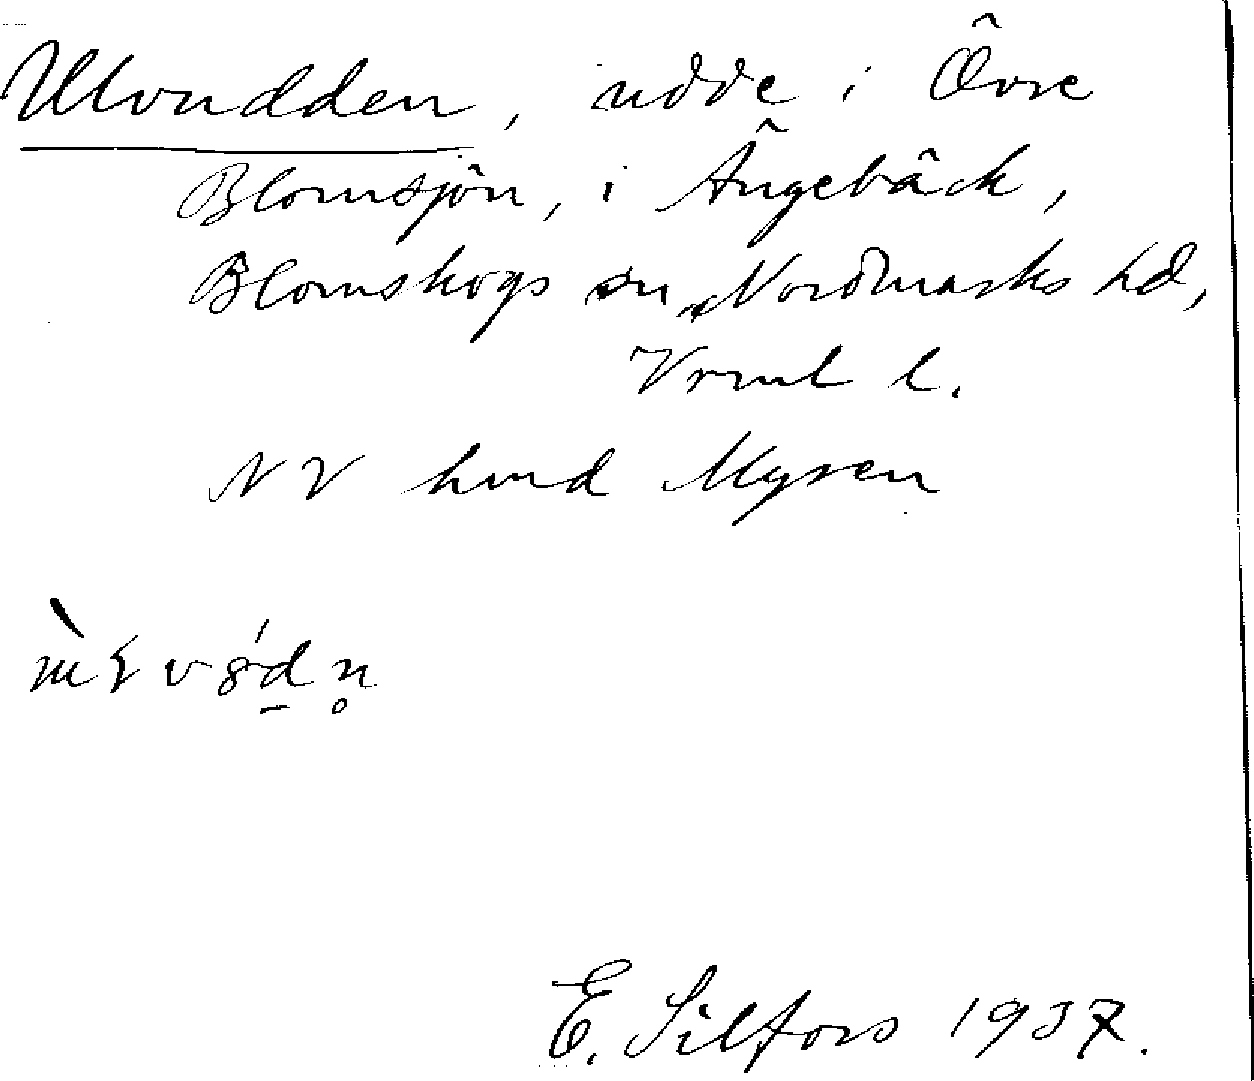 Ulvudden, udde i Övre
Blomsjön, i Ängebäck,
Blomskogs sn, Nordmarks hd,
Vrml l.
NV hmd Mysen
E. Silfors 1937.